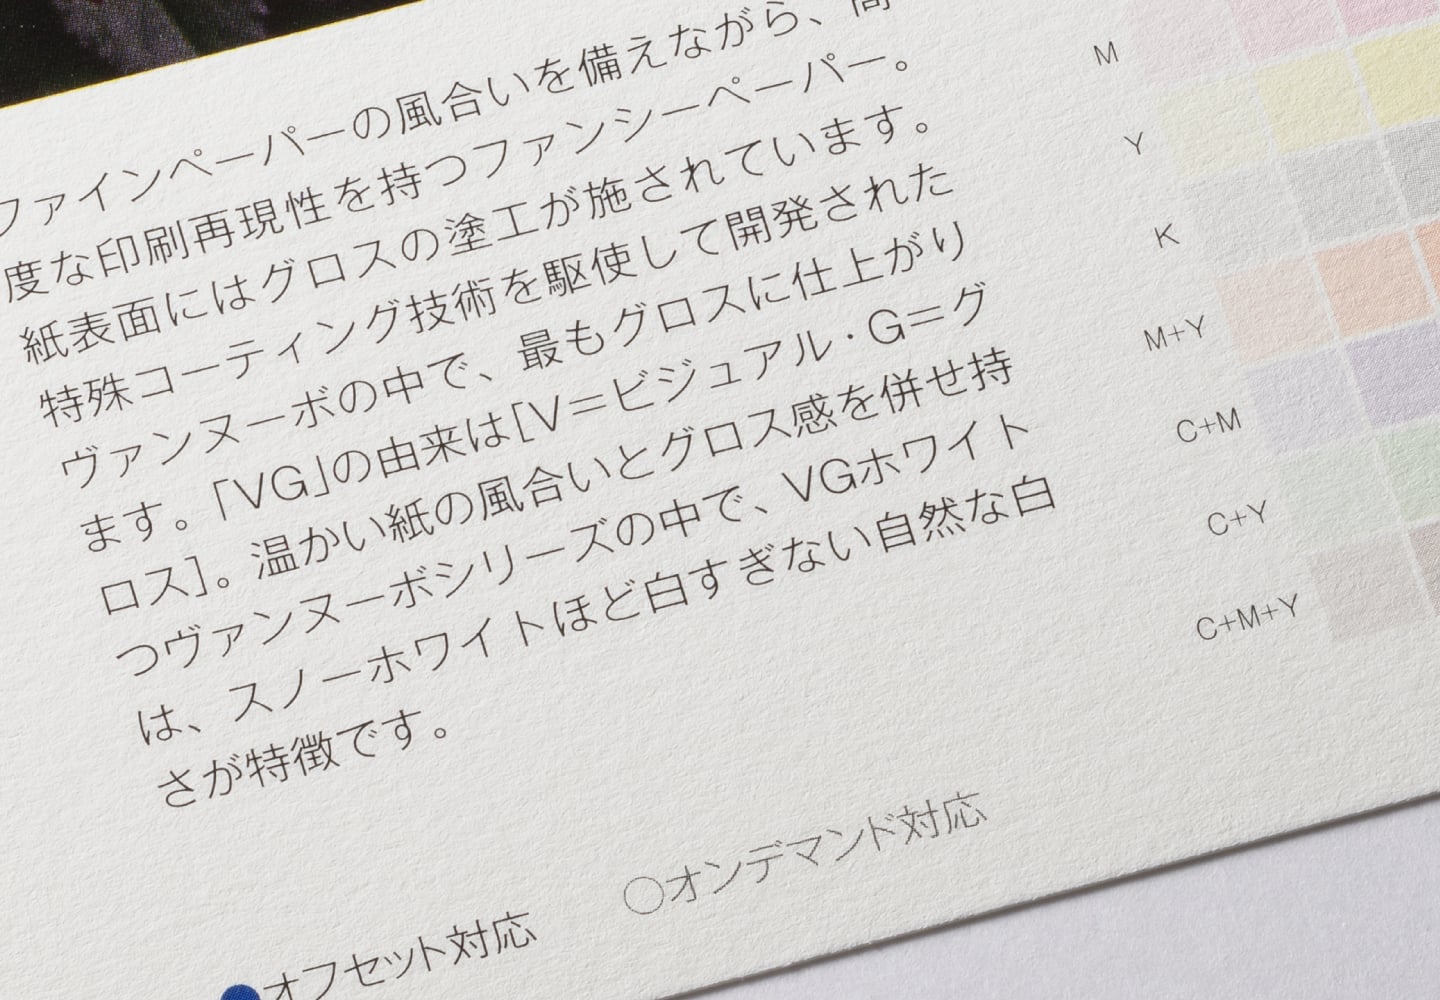 ファインペーパーの風合いを備えながら、高
度な印刷再現性を持つファンシーペーパー。
紙表面にはグロスの塗工が施されています。
特殊コーティング技術を駆使して開発された
ヴァンヌーボの中で、最もグロスに仕上がり
ます。「VG」の由来は[V=ビジュアル・G=グ
ロス]。温かい紙の風合いとグロス感を併せ持
つヴァンヌーボシリーズの中で、VGホワイト
は、スノーホワイトほど白すぎない自然な白
さが特徴です。
●オフセット対応
○オンデマンド対応
M
Y
K
M+Y
C+M
C+Y
C+M+Y